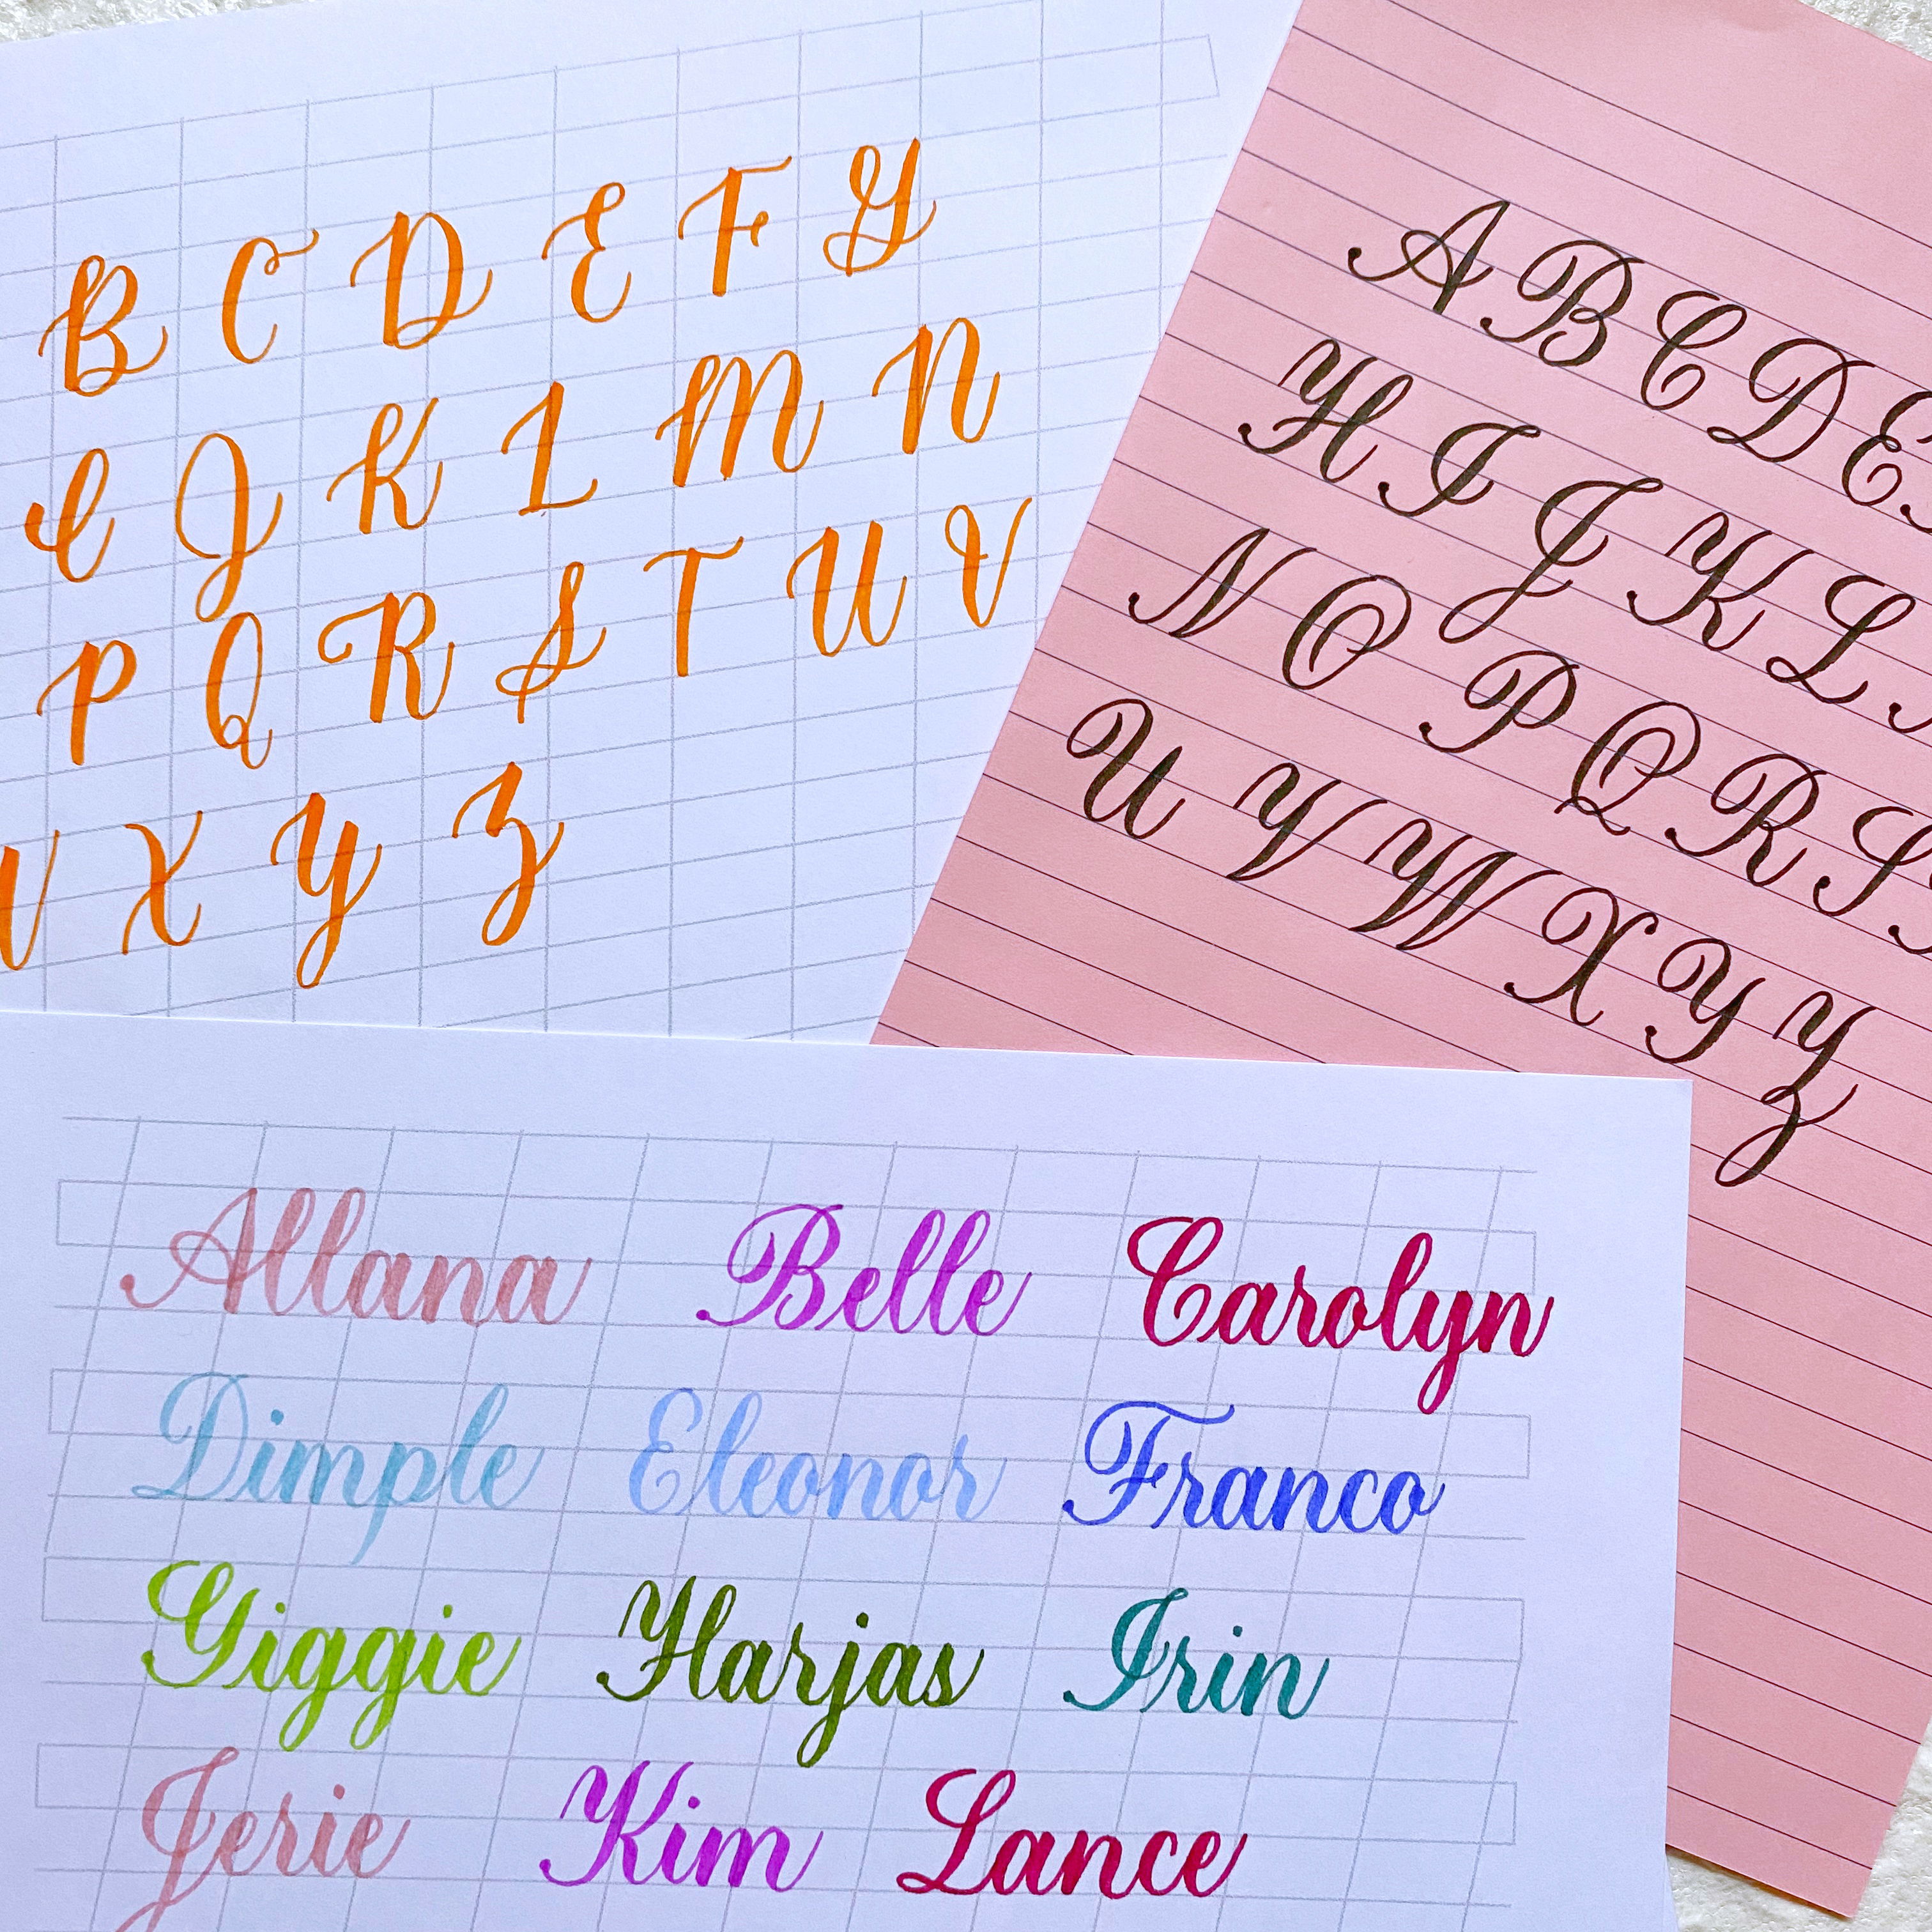 B C D E F G
I J K L M N
P Q R S T U V
X Y Z
A B C D E
H I J K L
N O P Q R S
U V W X Y Z
Allana Belle Carolyn
Dimple Eleonor Franco
Giggie Harjas Irin
Jerie Kim Lance